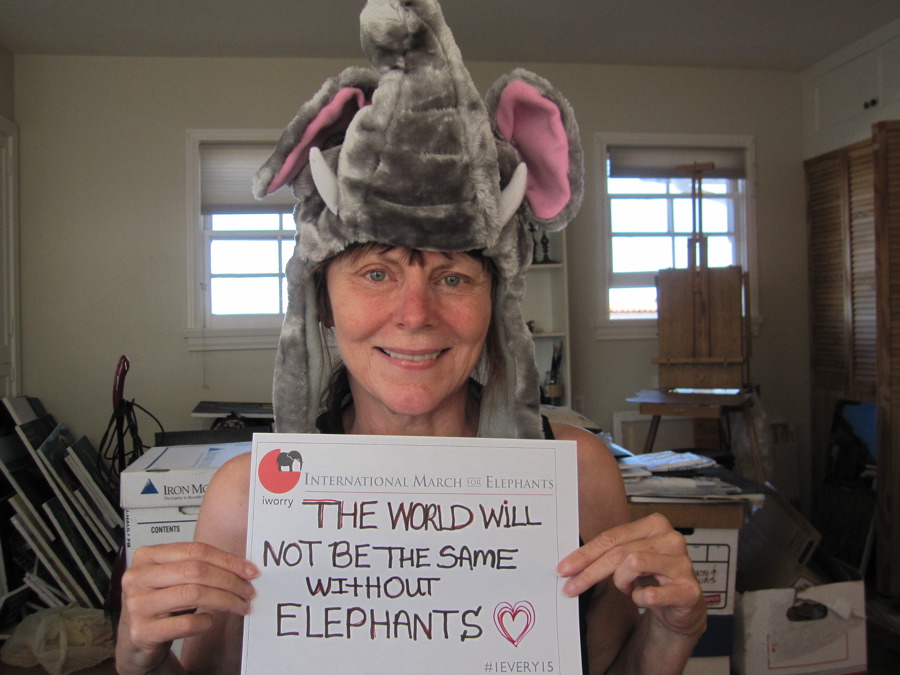 INTERNATIONAL MARCH FOR ELEPHANTS
iworry
THE WORLD WILL
NOT BE THE SAME
WITHOUT
ELEPHANTS
#1EVERY15
IRON MO
CONTENTS